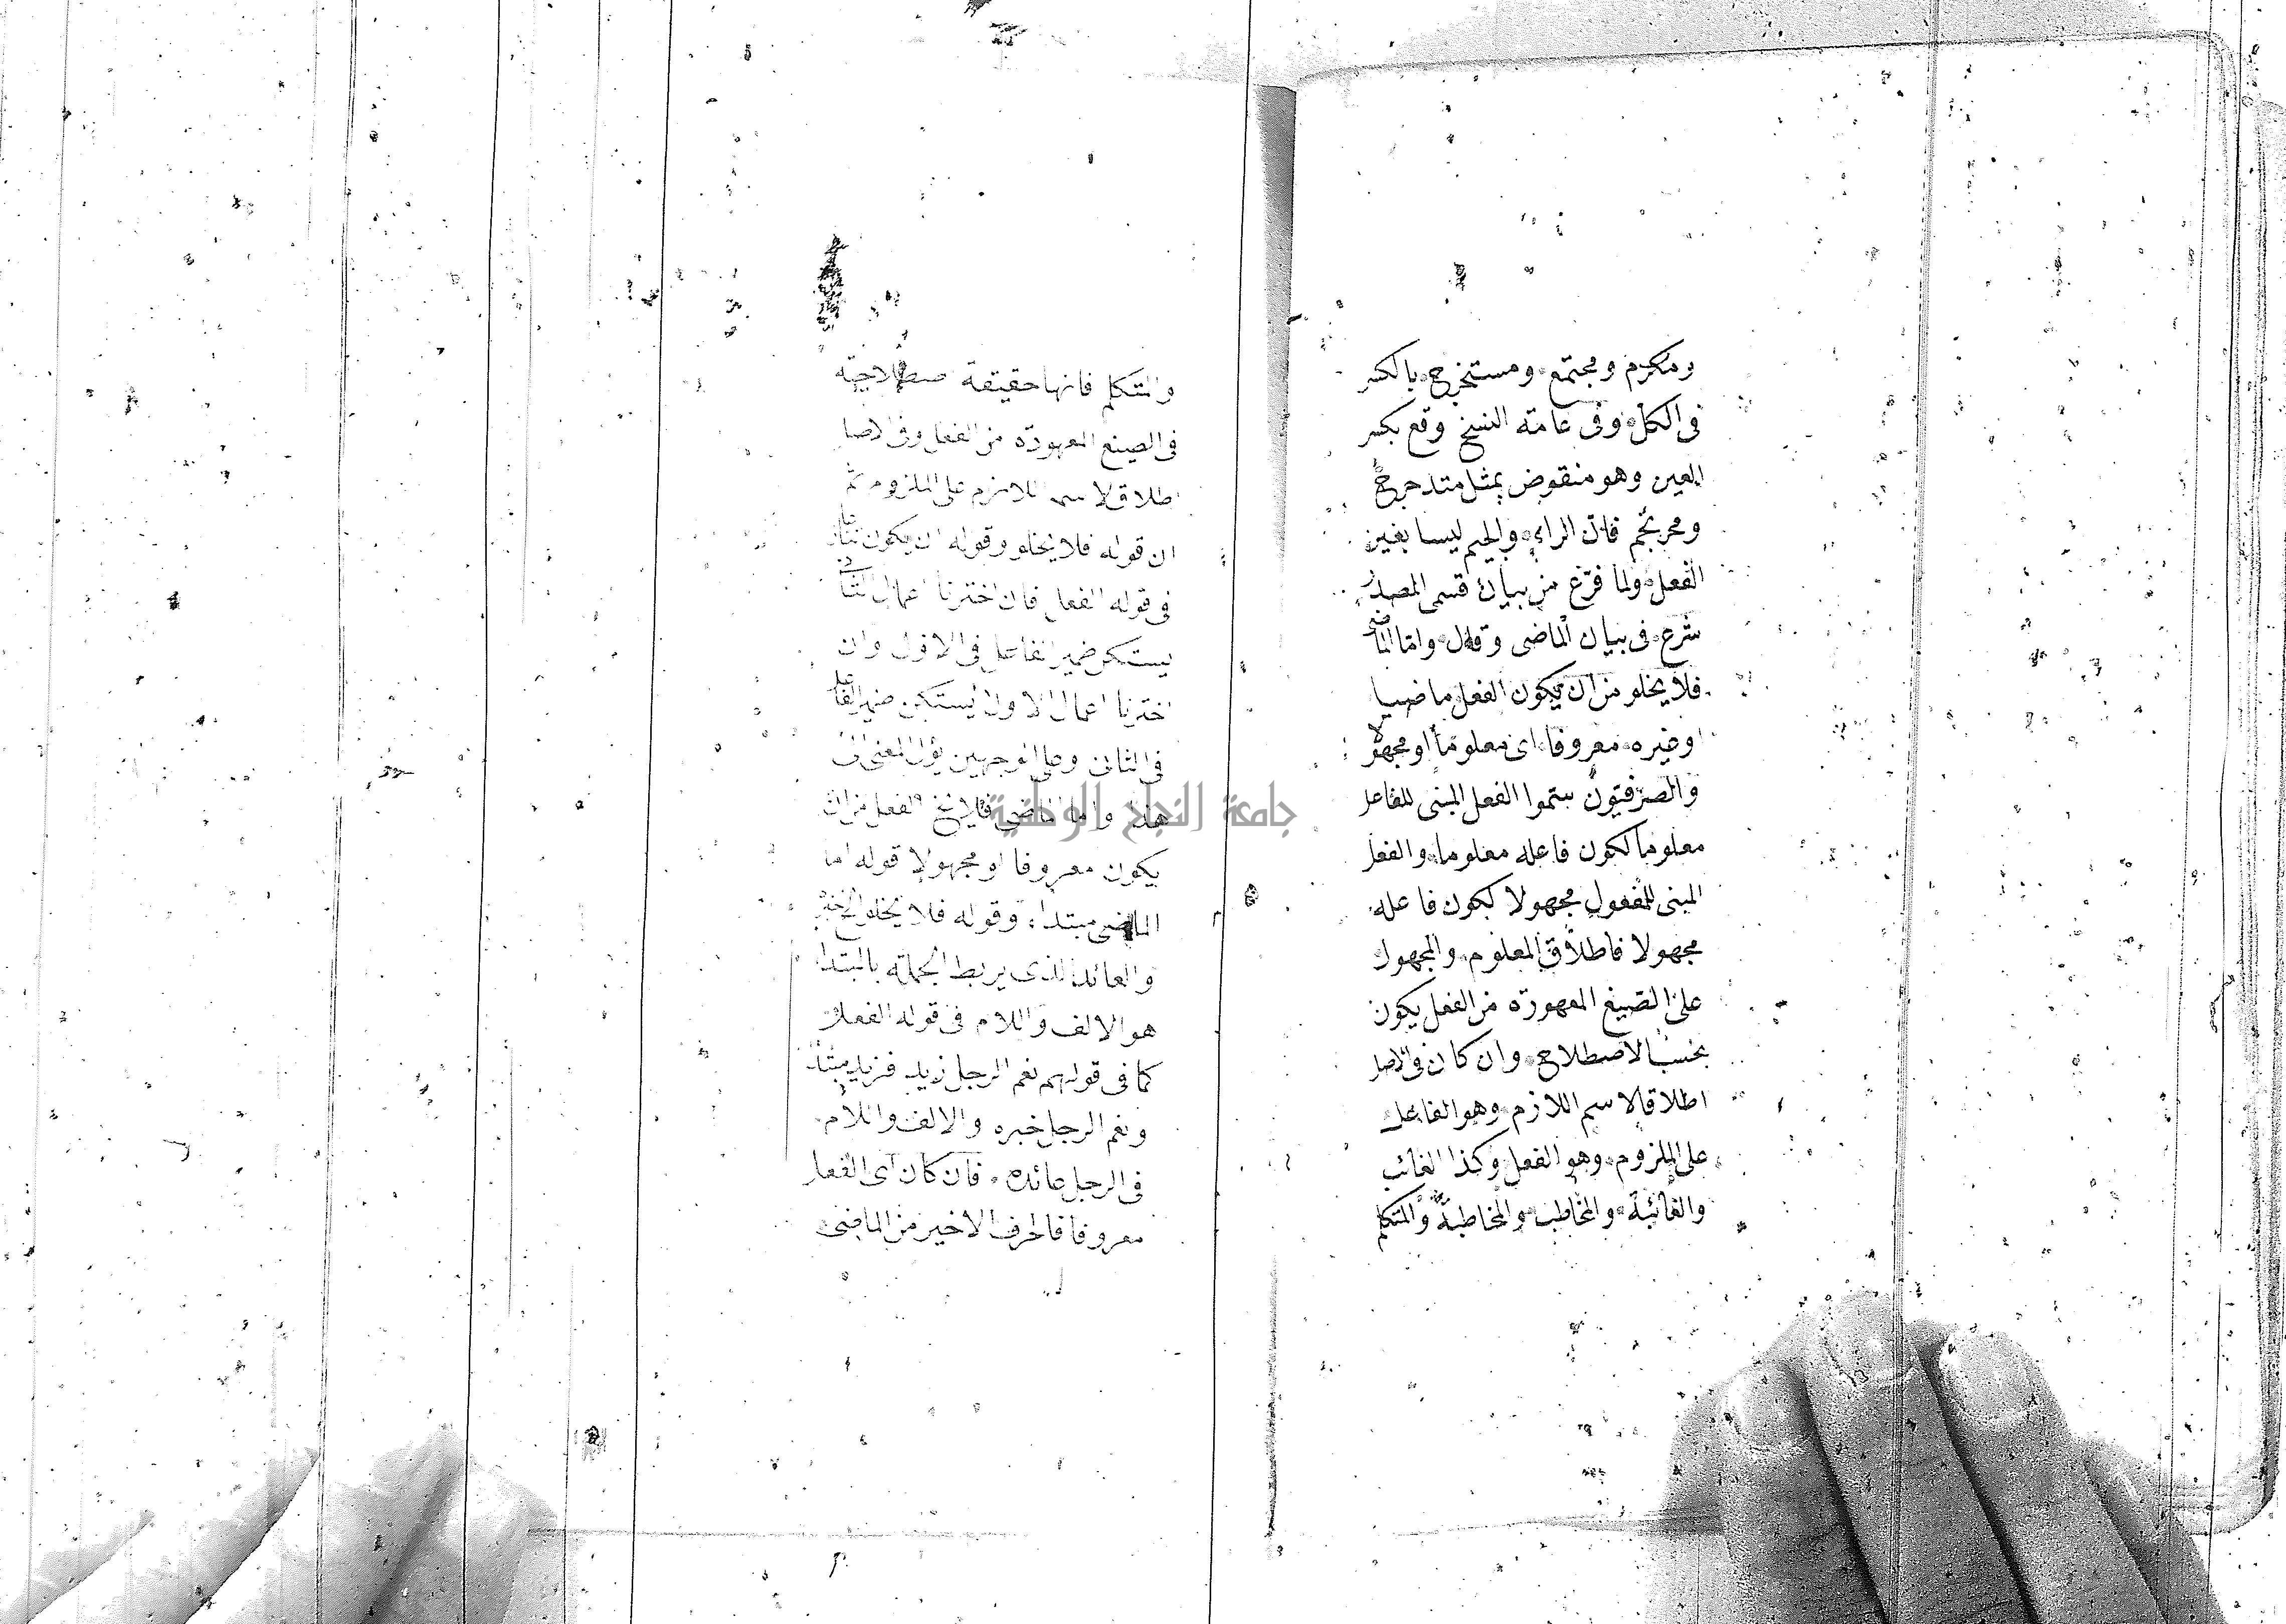 ومكرم ومجتمع ومستخرج بالكسر
فى الكل وفى عامة النسخ وقع بكسر
العين وهو منقوض بمثل متدحرج
ومحرنجم فان الراء والجيم ليسا بعين
الفعل ولما فرغ من بيان قسمى المصدر
شرع فى بيان الماضى وقال واما الماضى
فلا يخلو من ان يكون الفعل ماضيا
او غيره معروفا اى معلوما او مجهولا
والصرفيون سموا الفعل المبنى للفاعل
معلوما لكون فاعله معلوما والفعل
المبنى للمفعول مجهولا لكون فاعله
مجهولا فاطلاق المعلوم والمجهول
على الصيغ المعهودة من الفعل يكون
بحسب الاصطلاح وان كان فى الاصل
اطلاقا لاسم اللازم وهو الفاعل
على الملزوم وهو الفعل وكذا الغائب
والغائبة والمخاطب والمخاطبة والمتكلم
والمتكلم فانها حقيقة اصطلاحية
فى الصيغ المعهودة من الفعل وفى الاصل
اطلاق لاسم اللازم على الملزوم ثم
ان قوله فلا يخلو وقوله ان يكون تنازعا
فى قوله الفعل فان اخترنا اعمال الثانى
يستكن ضمير الفاعل فى الاول وان
اخترنا اعمال الاول يستكن ضمير الفاعل
فى الثانى وعلى الوجهين يؤل المعنى الى
هذا واما الماضى فلا يخ الفعل من ان
يكون معروفا او مجهولا قوله اما
الماضى مبتداء وقوله فلا يخلو الخ خبره
والعائد الذى يربط الجملة بالمبتدا
هو الالف واللام فى قوله الفعل
كما فى قولهم نعم الرجل زيد فزيد مبتدا
ونعم الرجل خبره والالف واللام
فى الرجل عائده فان كان اى الفعل
معروفا فالحرف الاخير من الماضى
جامعة النجاح الوطنية